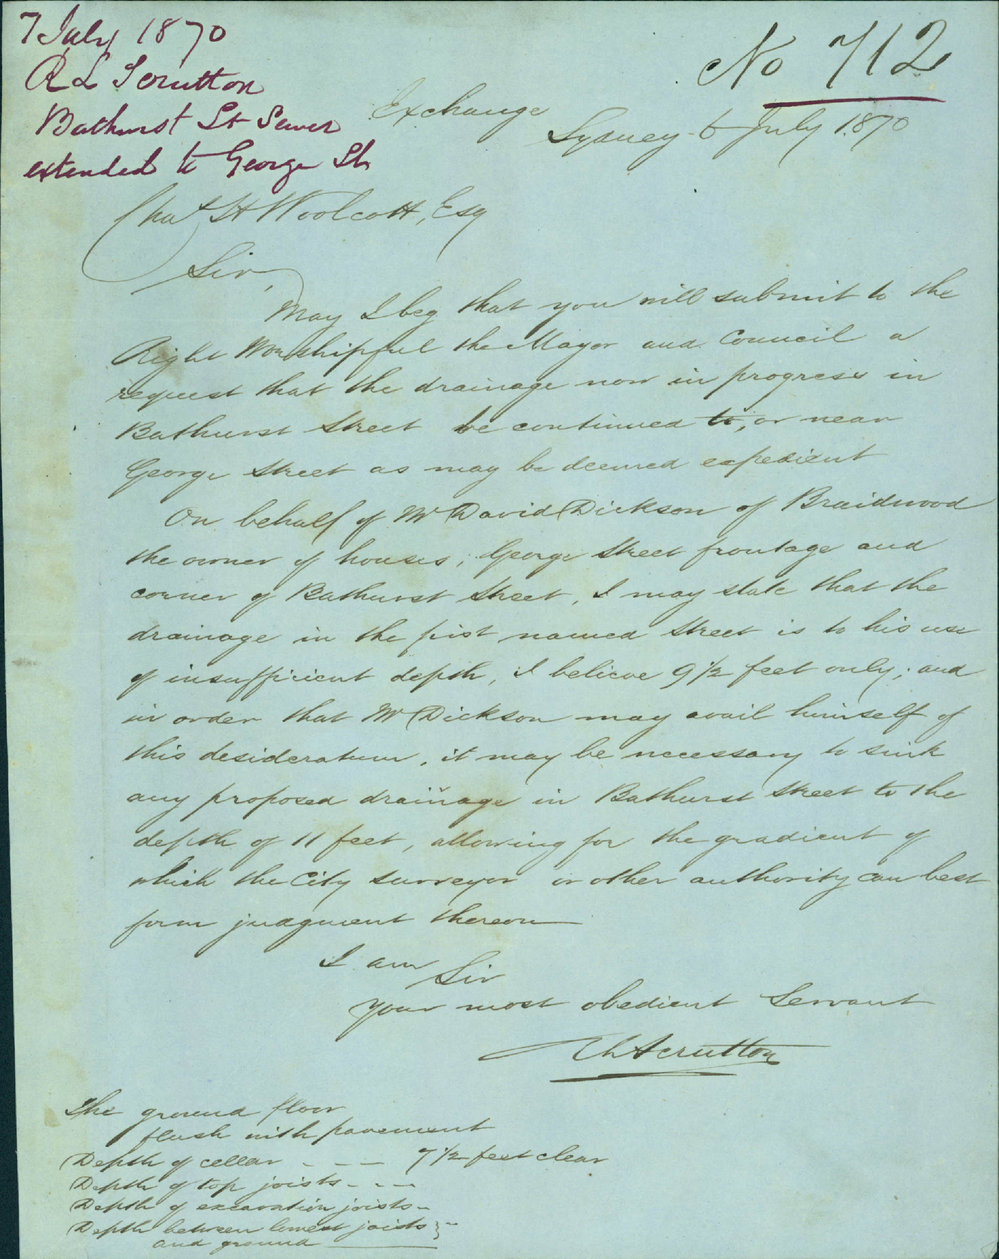 7 July 1870
R L Scrutton
Bathurst St Sewer
extended to George St
No 712
Exchange
Sydney 6 July 1870
Chas H Woolcott, Esq
Sir,
May I beg that you will submit to the
Right Worshipful the Mayor and Council a
request that the drainage now in progress in
Bathurst Street be continued to, or near
George Street as may be deemed expedient
On behalf of Mr David Dickson of Braidwood
the owner of houses, George Street frontage and
corner of Bathurst Street, I may state that the
drainage in the first named Street is to his use
of insufficient depth, I believe 9 1/2 feet only; and
in order that Mr Dickson may avail himself of
this desideratum, it may be necessary to sink
any proposed drainage in Bathurst Street to the
depth of 11 feet, allowing for the gradient of
which the City Surveyor or other authority can best
form judgment thereon
I am Sir
Your most obedient Servant
Scrutton
The ground floor
flush with pavement
Depth of cellar - - - 7 1/2 feet clear
Depth of top joists - - -
Depth of excavation joists -
Depth between lowest joists } -
and ground